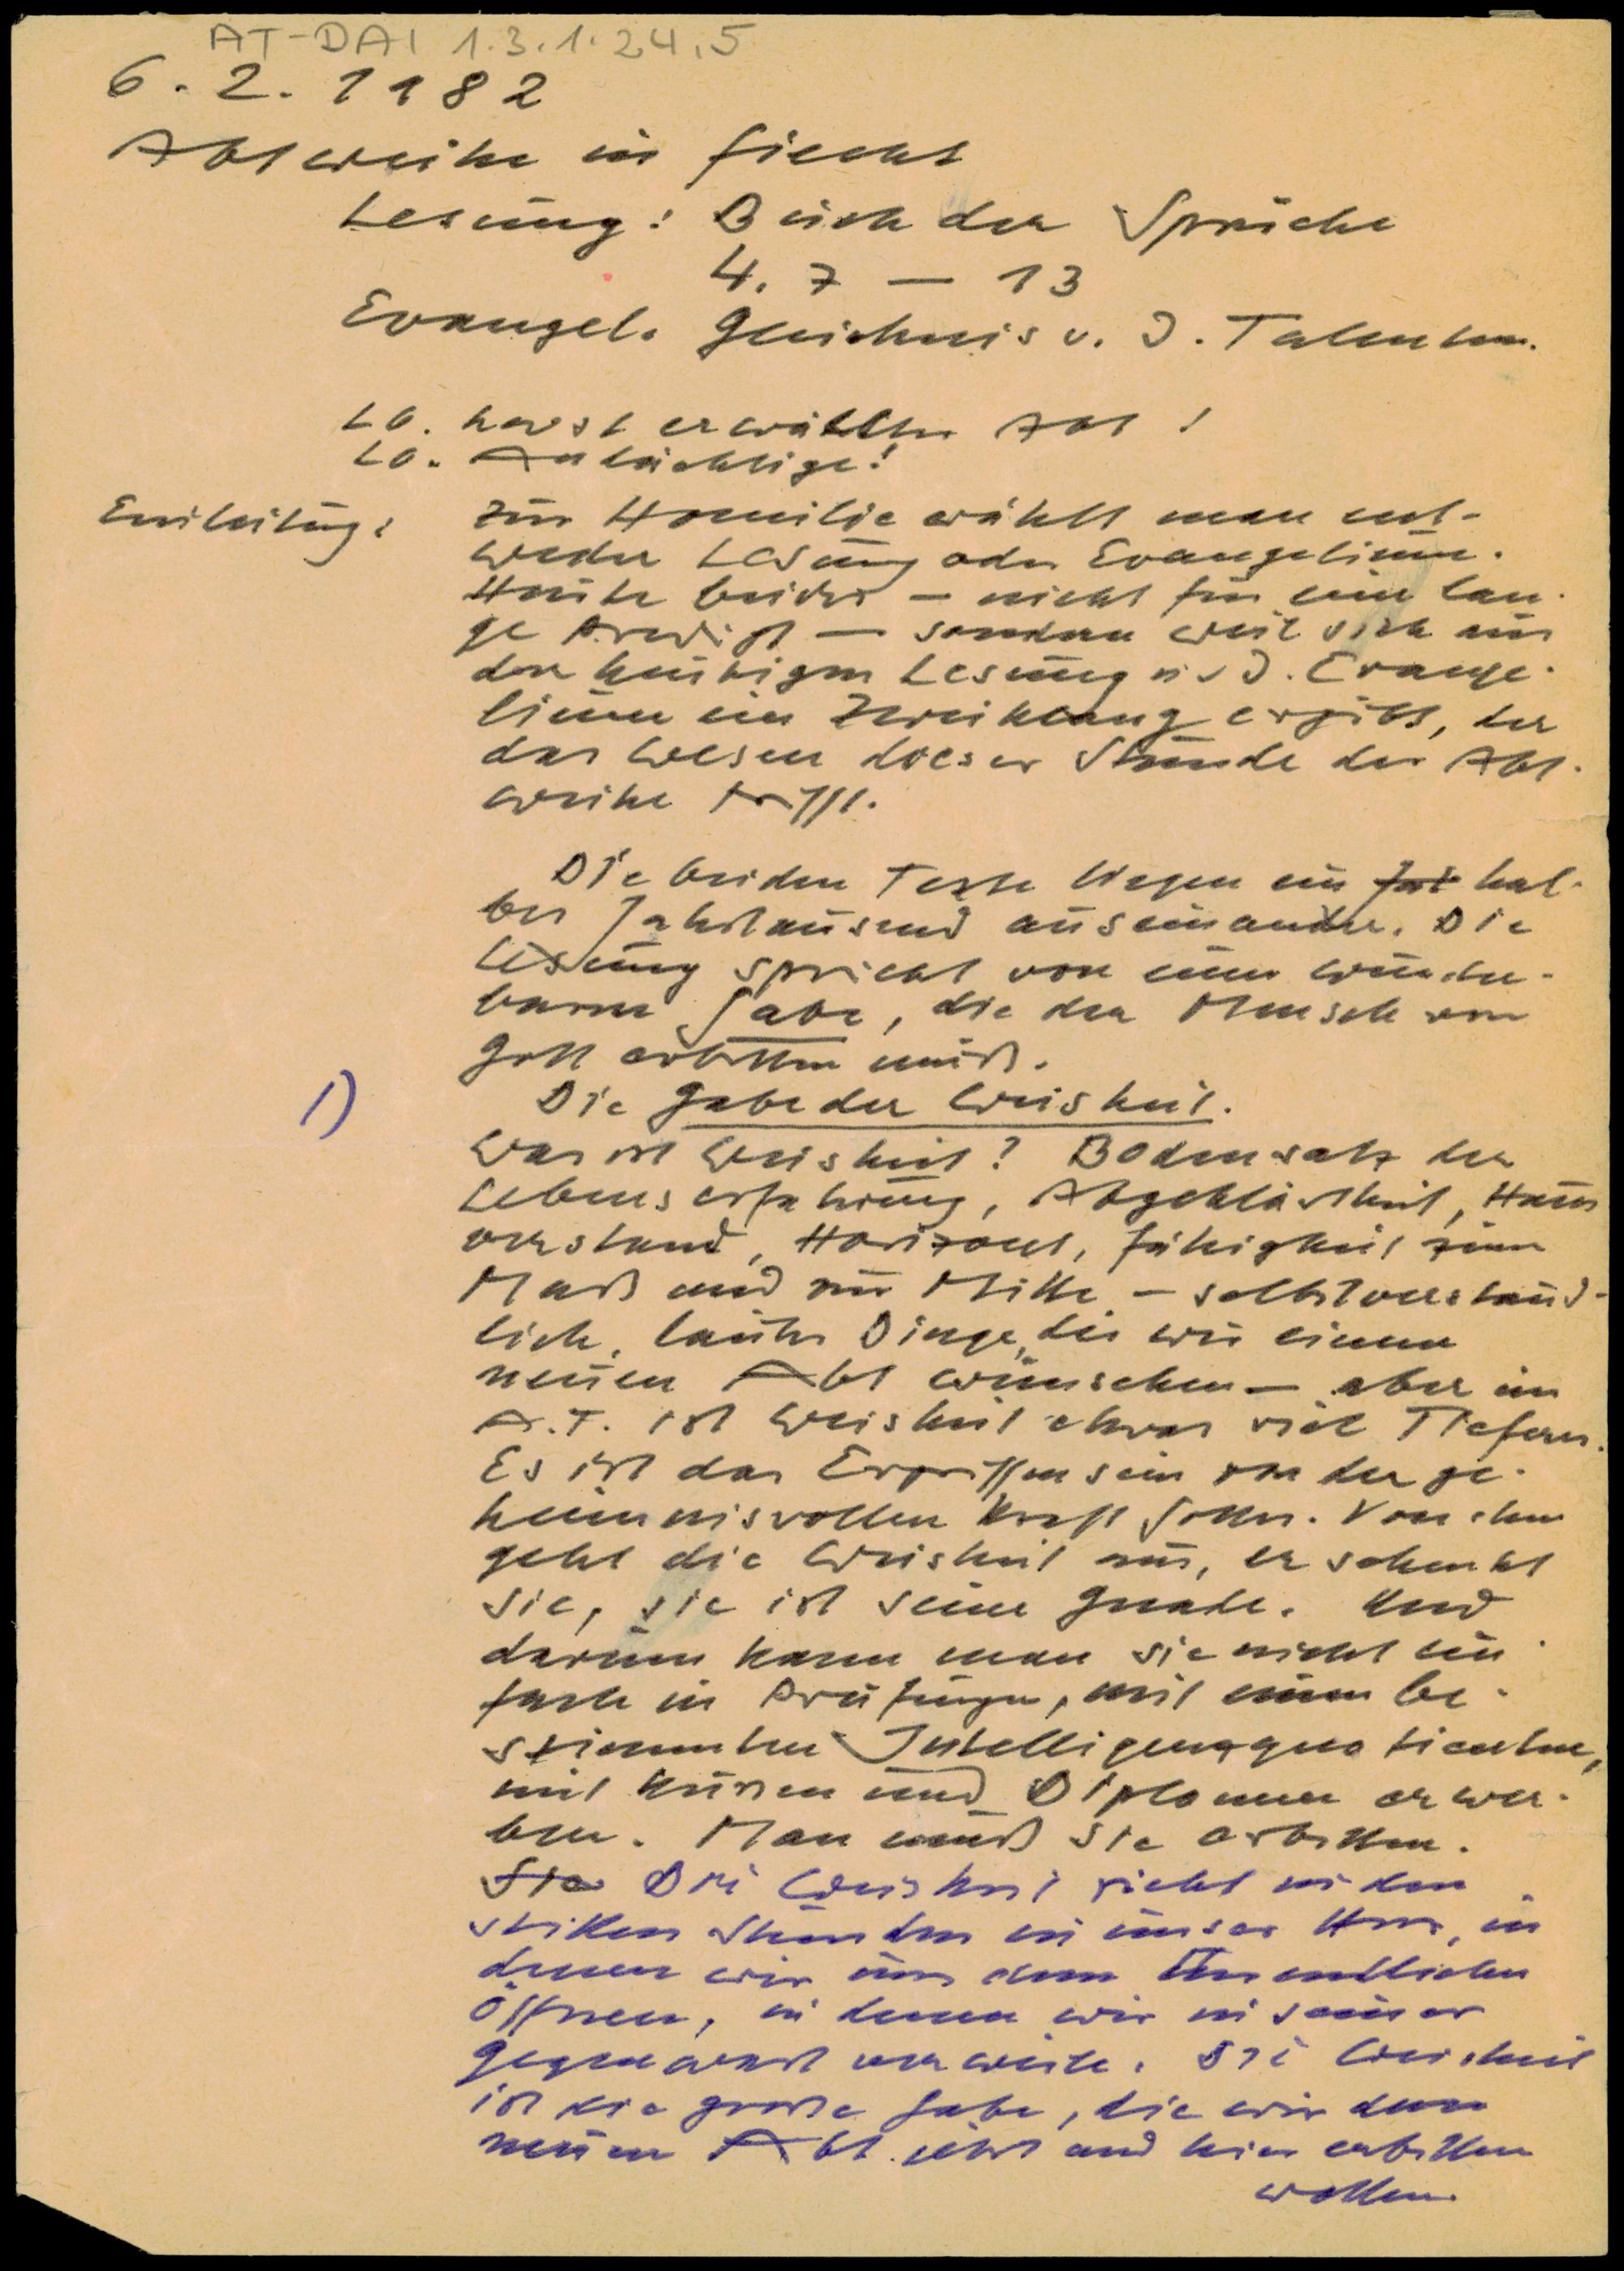 AT-DAI 1.3.1.24.5
6. 2. 1982
Abtweihe in Fiecht
Lesung: Buch der Sprüche
4. 7 — 13
Evangel. Gleichnis v. d. Talenten.
Lb. neuerwählter Abt!
Lb. Andächtige!
Einleitung: Zur Homilie wählt man ent-
weder Lesung oder Evangelium.
Heute beides — nicht für eine lan-
ge Predigt — sondern weil sich aus
der heutigen Lesung u. d. Evange-
lium ein Zweiklang ergibt, der
das Wesen dieser Stunde der Abt-
weihe trifft.
Die beiden Texte liegen ein hal-
bes Jahrtausend auseinander. Die
Lesung spricht von einer wunder-
baren Gabe, die der Mensch von
Gott erbitten muß.
1) Die Gabe der Weisheit.
Was ist Weisheit? Bodensatz der
Lebenserfahrung, Abgeklärtheit, Haus
verstand, Horizont, Fähigkeit zum
Maß und zur Mitte – selbstverständ-
lich, lauter Dinge, die wir einem
neuen Abt wünschen – aber im
A.T. ist Weisheit etwas viel Tieferes.
Es ist das Ergriffensein von der ge-
heimnisvollen Kraft Gottes. Von ihm
geht die Weisheit aus, er schenkt
sie, sie ist seine Gnade. Und
darum kann man sie nicht ein-
fach in Prüfungen, mit einem be-
stimmten Intelligenzquotienten,
mit Kursen und Diplomen erwer-
ben. Man muß sie erbitten.
Sie Die Weisheit zieht in den
stillen Stunden in unser Herz, in
denen wir uns dem Unendlichen
öffnen, in denen wir in seiner
Gegenwart verweilen. Die Weisheit
ist die große Gabe, die wir dem
neuen Abt jetzt und hier erbitten
wollen.